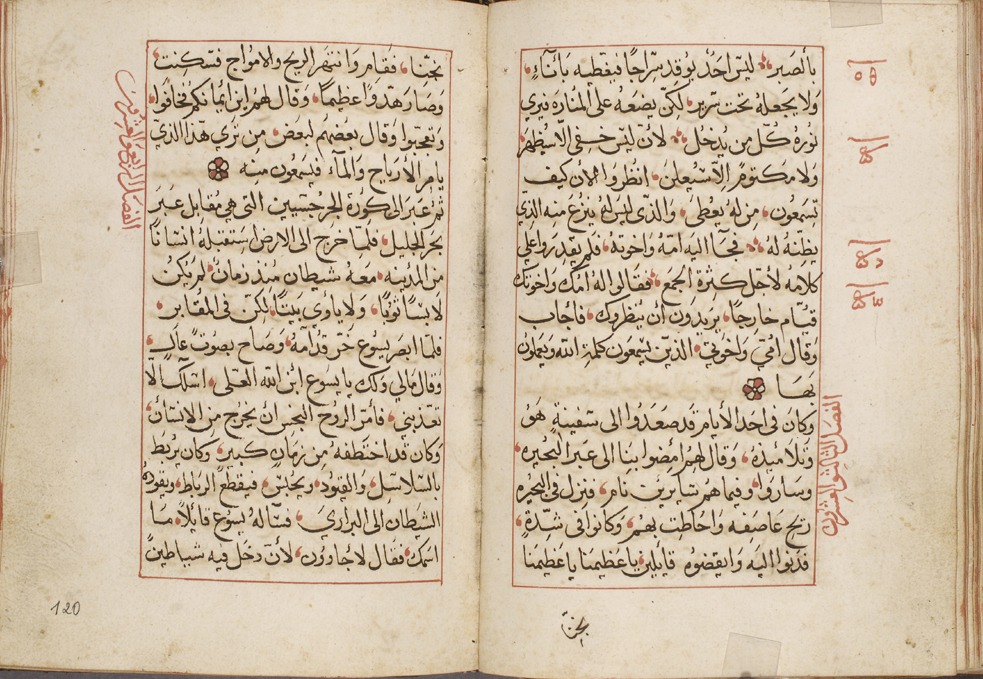 بالصبر، ليس احد يوقد سراجًا فيغطيه باناءٍ
ولا يجعله تحت سرير، لكن يضعه على المنارة فيرى
نوره كل من يدخل، لان ليس خفي الا سيظهر
ولا مكتوم الا سيعلن، انظروا الان كيف
تسمعون، من له يعطى، والذي ليس له ينزع منه الذي
يظنه له، فجآ اليه امه واخوته، فلم يقدروا على
كلامه لاجل كثرة الجمع، فقالوا له امك واخوتك
قيام خارجًا، يريدون أن ينظروك، فأجاب
وقال امي واخوتي، الذين يسمعون كلمة الله ويعملون
بها
الفصل الثالث والعشرون
وكان في احد الأيام قد صعدوا الى سفينةٍ هو
وتلاميذه، وقال لهم امضوا بنا الى عبر البحيره،
وساروا، وفيما هم سايرين نام، ونزل في البحيره
ريح عاصفه واحاطت بهم، وكانوا في شدةٍ،
فدنوا اليه وايقضوه قايلين، يا عظيمنا يا عظيمنا
نجنا
نجنا، فقام وانتهر الريح والامواج فسكنت
وصار هدوا عظيما، وقال لهم اين ايمانكم فخافوا،
وتعجبوا وقال بعضهم لبعض، من تري هذا الذي
يامر الارياح والمآء فيسمعون منه
الفصل الرابع والعشرون
ثم عبر الى كورة الجرجسيين التي هي مقابل عبر
بحر الجليل، فلما خرج الى الارض استقبله انسانًا
من المدينه، معه شيطان منذ زمان، لم يكن
لابسًا ثوبًا، ولا ياوي بيتًا، لكن في المقابر،
فلما ابصر يسوع خر قدامه، وصاح بصوت عالٍ
وقال مالي ولك يا يسوع ابن الله العلي، اسئلك الا
تعذبني، فأمر الروح النجس ان يخرج من الانسان،
وكان قد اختطفه من زمان كبير، وكان يربط
بالسلاسل والقيود، ويحبس، فيقطع الرباط، ويقوده
الشيطان الى البراري، فساله يسوع قايلاً، ما
اسمك، فقال لاجاوون، لأن دخل فيه شياطين
120